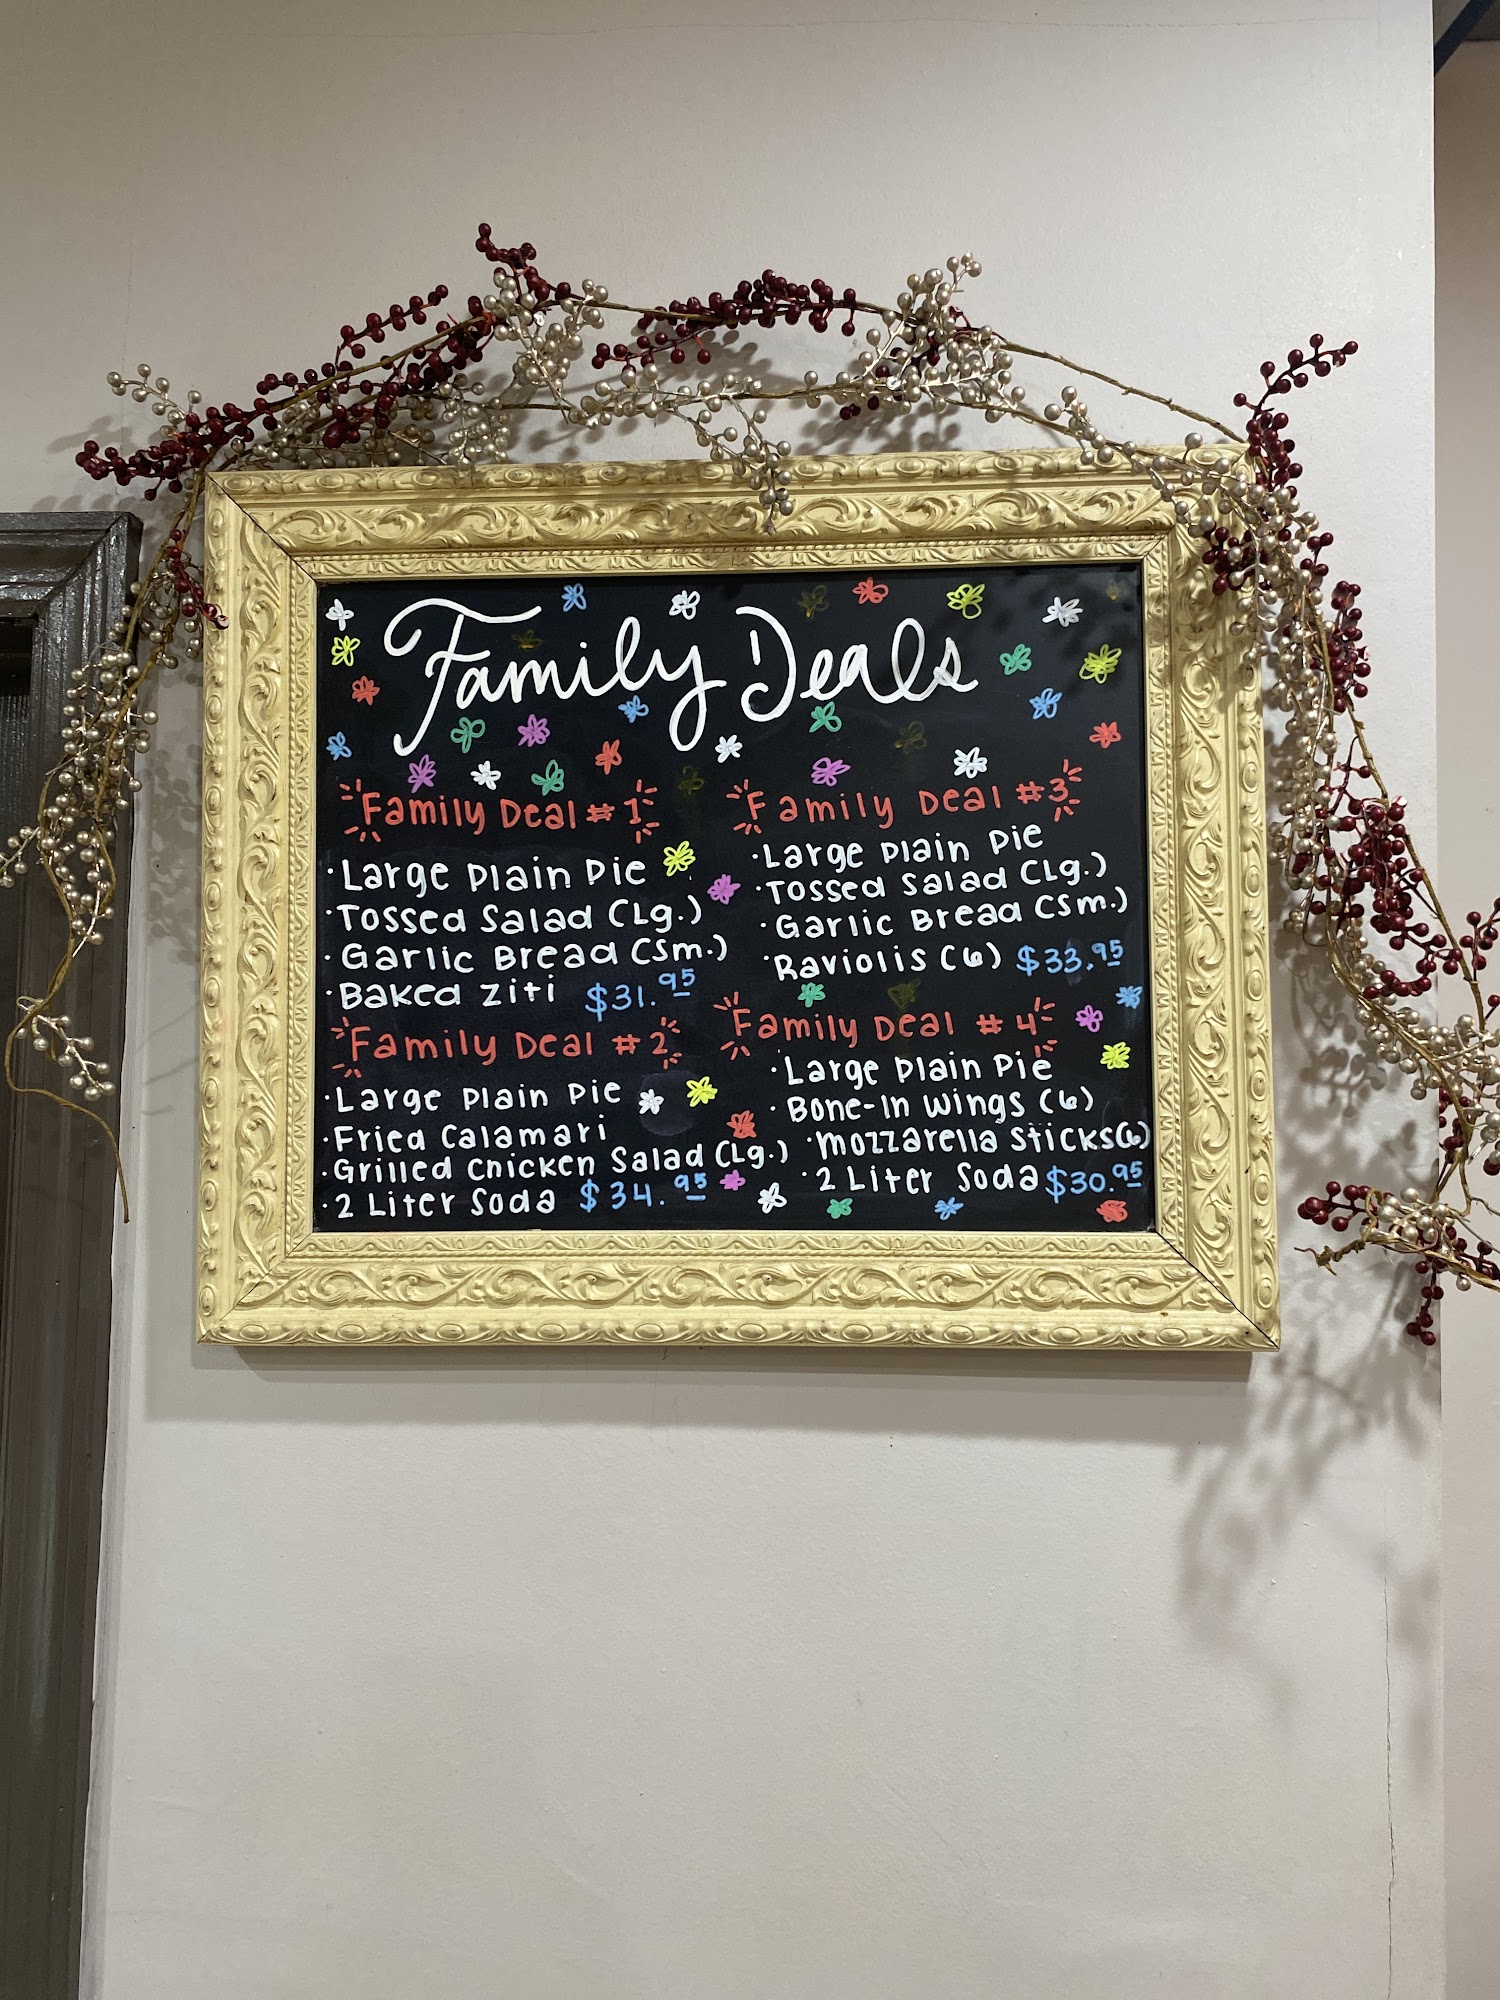 Family Deals
Family Deal #1
· Large Plain Pie
· Tossed Salad (Lg.)
· Garlic Bread (Sm.)
· Baked Ziti $31.95
Family Deal #2
· Large Plain Pie
· Fried Calamari
· Grilled Chicken Salad (Lg.)
· 2 Liter Soda $34.95
Family Deal #3
· Large Plain Pie
· Tossed Salad (Lg.)
· Garlic Bread (Sm.)
· Raviolis (6) $33.95
Family Deal #4
· Large Plain Pie
· Bone-In Wings (6)
· Mozzarella Sticks (6)
· 2 Liter Soda $30.95